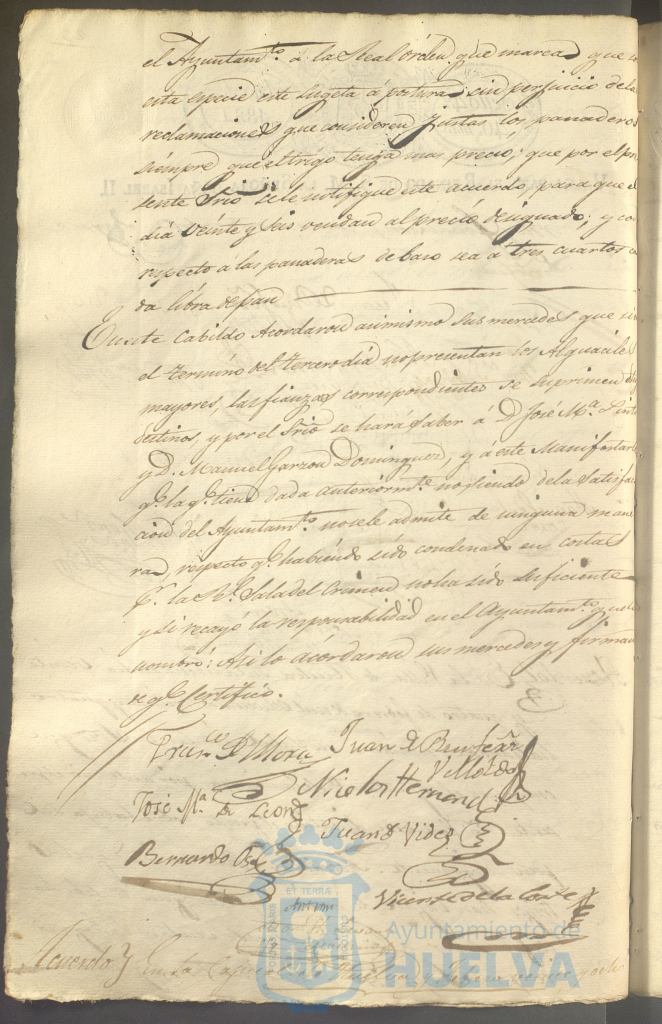 el Ayuntam.to á la Real órden que marca que
esta especie este sugeta á postura sin perjuicio de la
reclamaciones que consideren justas los panaderos
siempre que el trigo tenga mas precio; que por el pre
sente Srio se le notifique este acuerdo, para que el
dia veinte y seis vendan al precio designado; y con
respecto á las panaderas de bazo sea a tres cuartos ca
da libra de pan
En este Cabildo Acordaron asimismo sus mercedes que si
el termino del tercero dia no presentan los Alguaciles
mayores, las fianzas correspondientes se suprimen
destinos, y por el Srio se hará saber á D. José M.a Pinto
y D. Manuel Garzon Dominguez, y a este Manifestarle
q.e la q.e tiene dada anteriorm.te no siendo de la satisfa
cion del Ayuntam.to no se le admite de ninguna mane
ra, respecto q.e habiendo sido condenado en costas
p.r la Sala del Crimen no ha sido suficiente
y si recayó la responsabilidad en el Ayuntam.to que
nombró: Asi lo acordaron sus mercedes y firman
de q.e Certifico.
Fran.co D Mora Juan de
Villoldo
Nicolas Hernand
José M.a de Leon
Juan de Videz
Bernardo
Vicente de la Corte
Acuerdo En la
ET TERRÆ
Ayuntamiento de
HUELVA